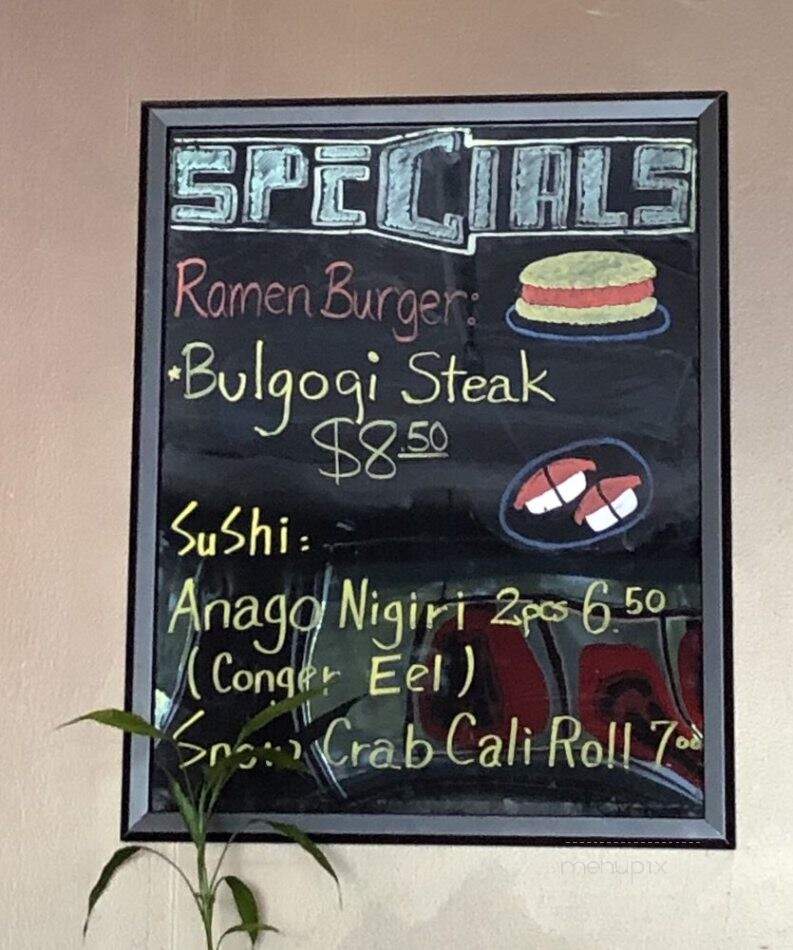 SPECIALS
Ramen Burger:
*Bulgogi Steak
$8.50
SuShi:
Anago Nigiri 2pcs 6.50
(Conger Eel)
Snow Crab Cali Roll 7.00
menupix